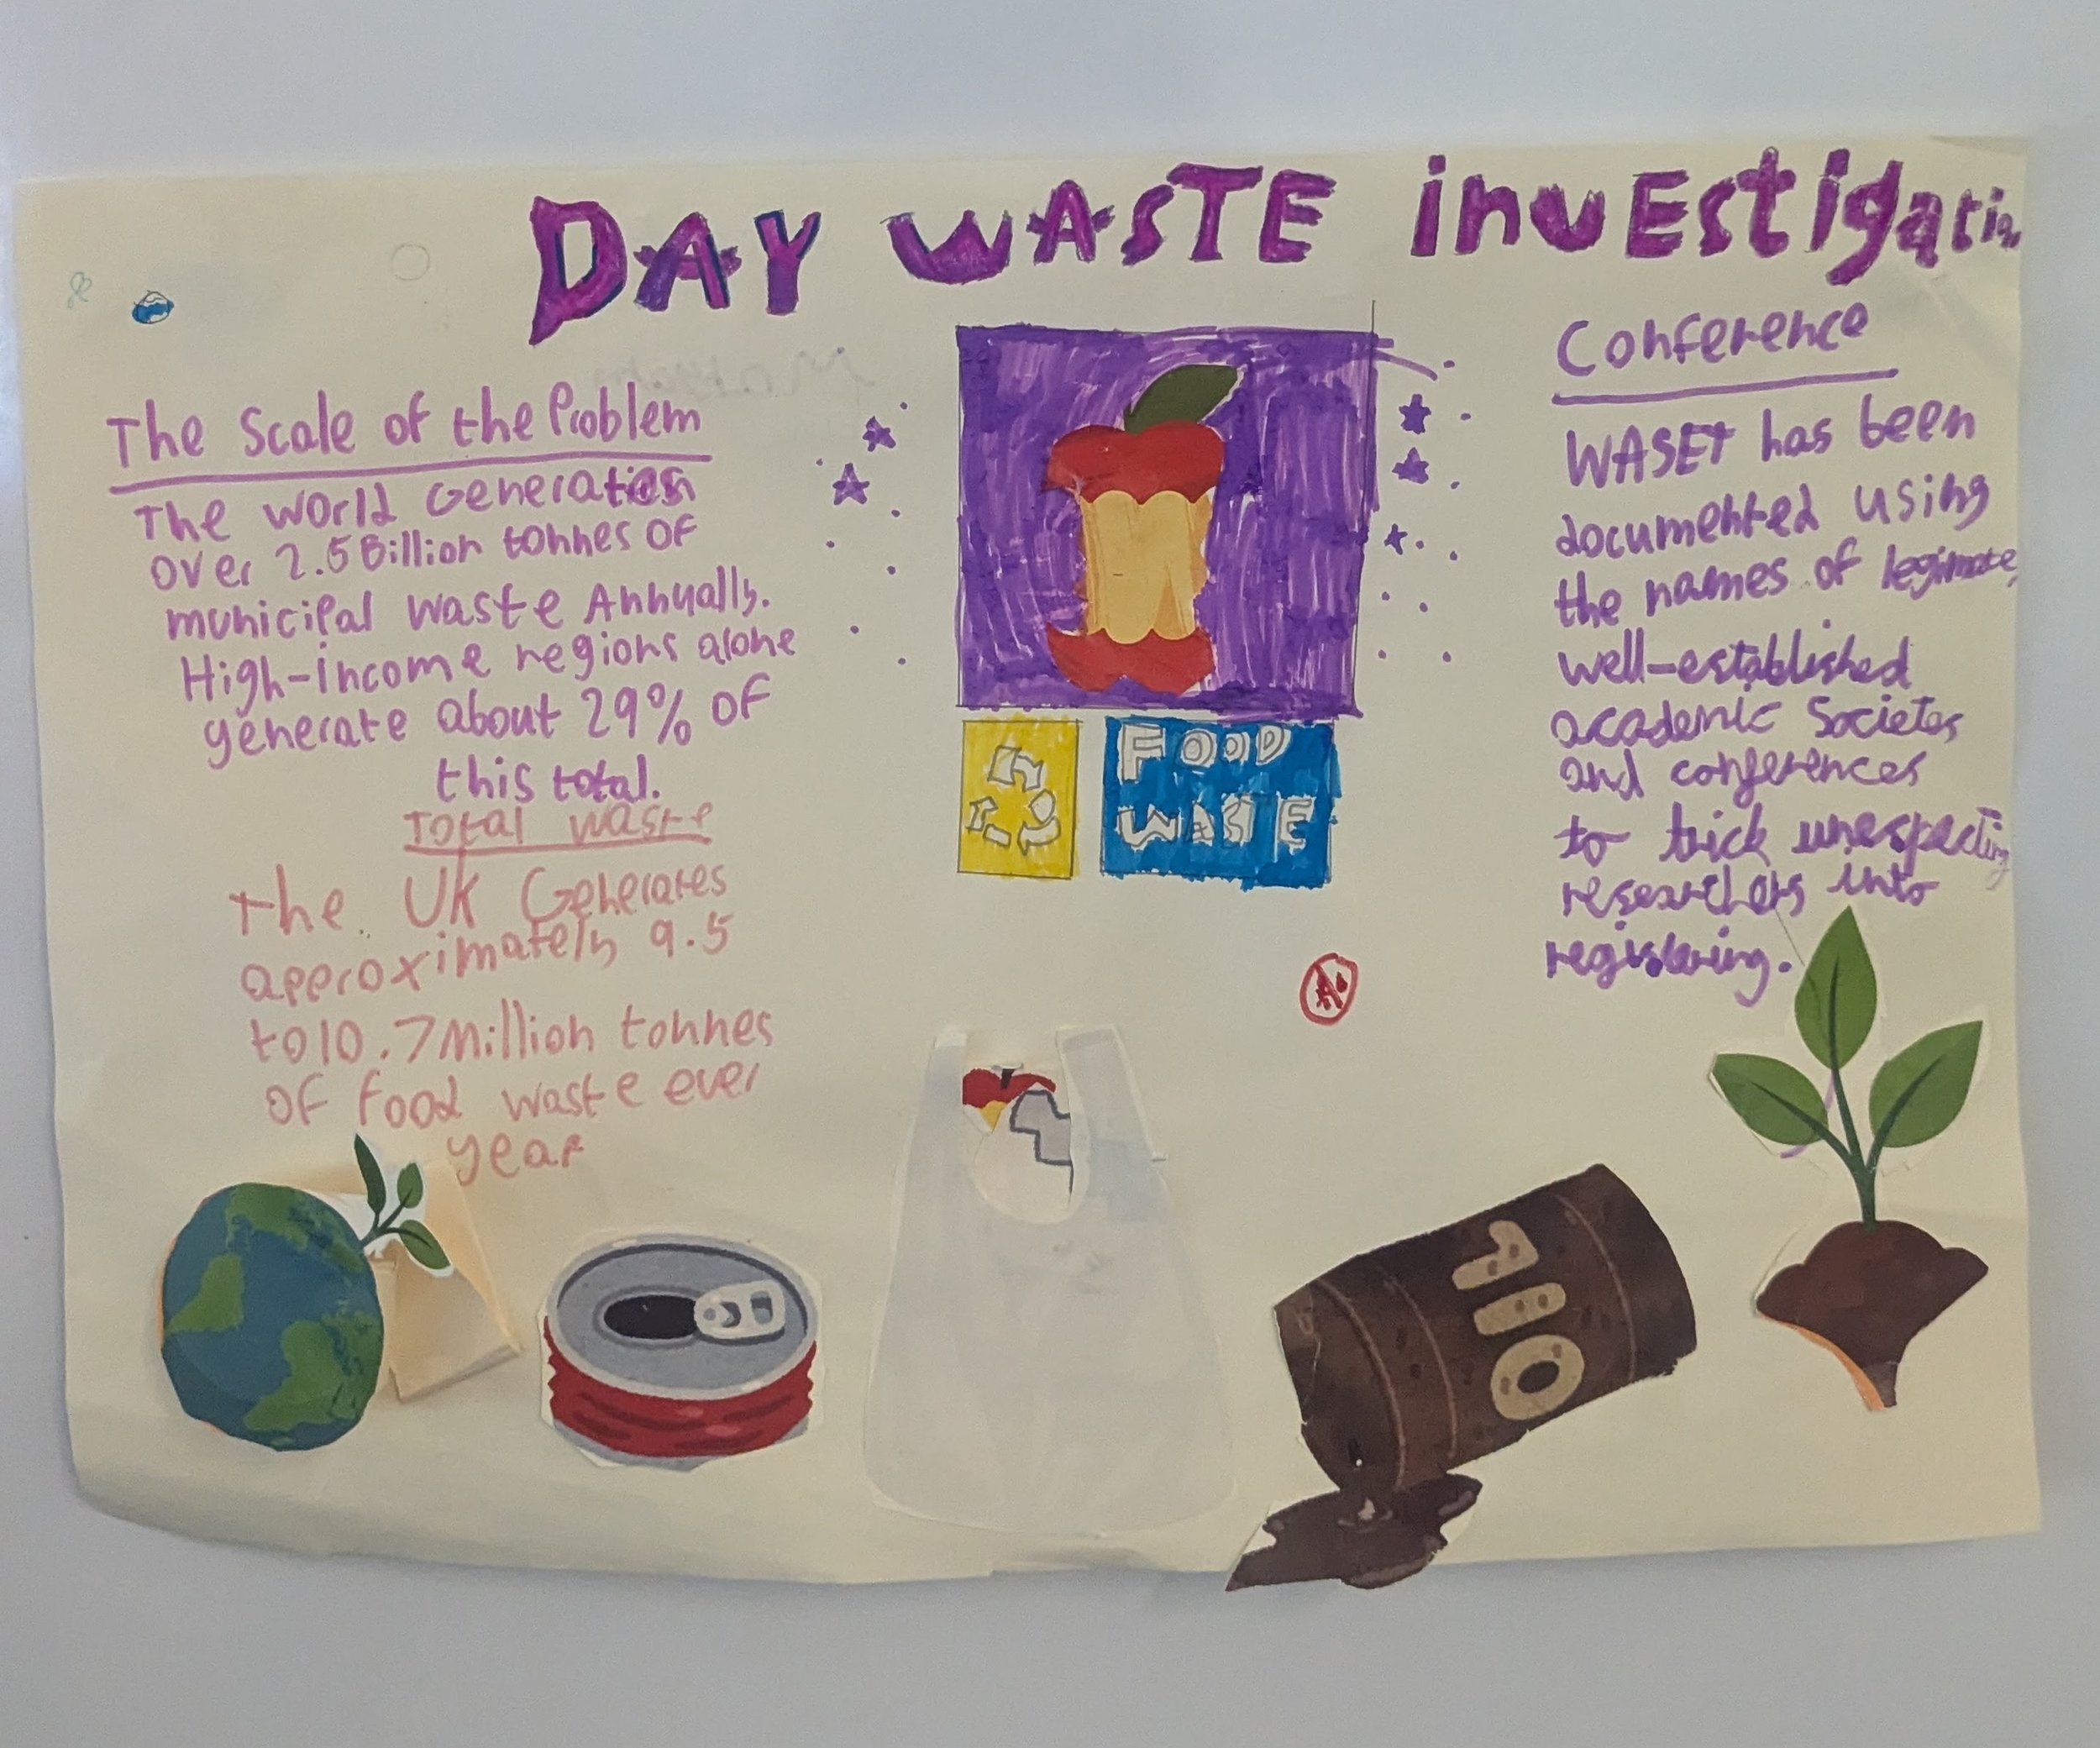 DAY WASTE investigation
The Scale of the Problem
The world Generates
over 2.5 Billion tonnes of
municipal waste Annually.
High-income regions alone
generate about 29% of
this total.
Total waste
The UK Generates
approximately 9.5
to 10.7 Million tonnes
of food waste ever
year
FOOD
WASTE
A
OIL
Conference
WASET has been
documented using
the names of legimate,
well-established
academic Societes
and conferences
to trick unespecting
researchers into
registering.